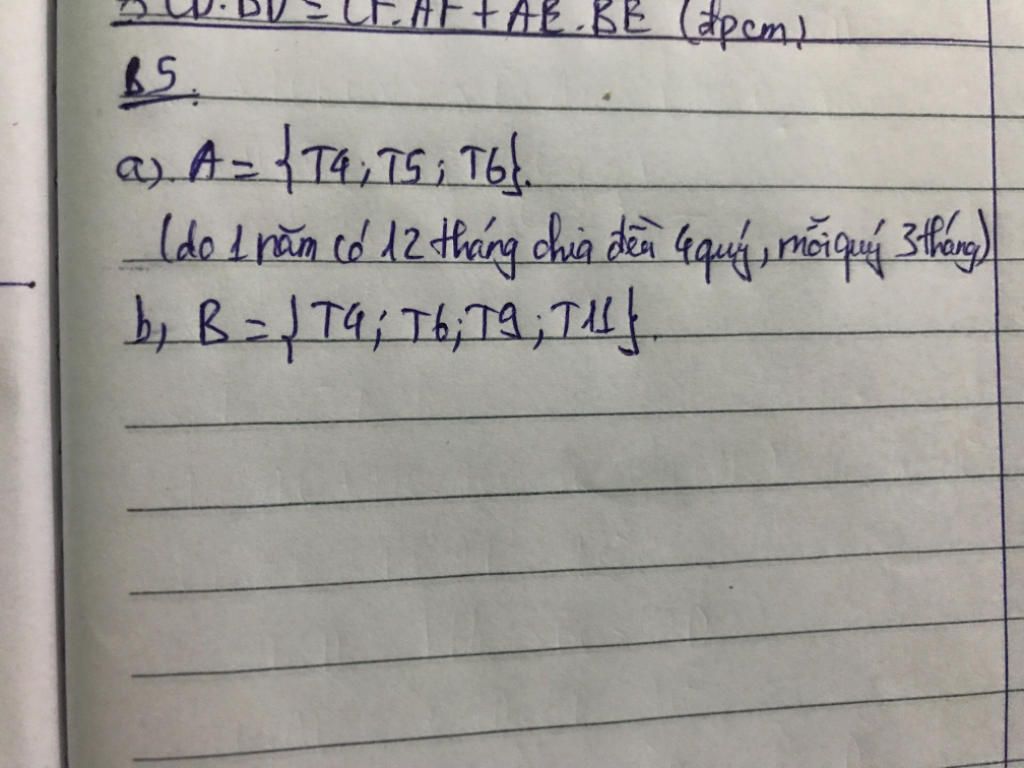 ⇒ CD.BD = CF.AF + AE.BE (đpcm)
B5.
a). A = {T4; T5; T6}.
(do 1 năm có 12 tháng chia đều 4 quý, mỗi quý 3 tháng)
b, B = {T4; T6; T9; T11}.